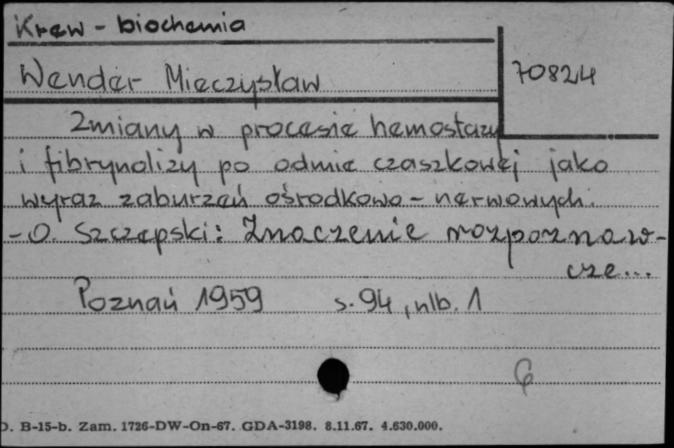 Krew - biochemia
Wender Mieczysław
70824
Zmiany w procesie hemostazy
i fibrynolizy po odmie czaszkowej jako
wyraz zaburzeń ośrodkowo - nerwowych.
- O. Szczepski: Znaczenie rozpoznaw-
cze...
Poznań 1959 s. 94, nlb. 1
G
D. B-15-b. Zam. 1726-DW-On-67. GDA-3198. 8.11.67. 4.630.000.